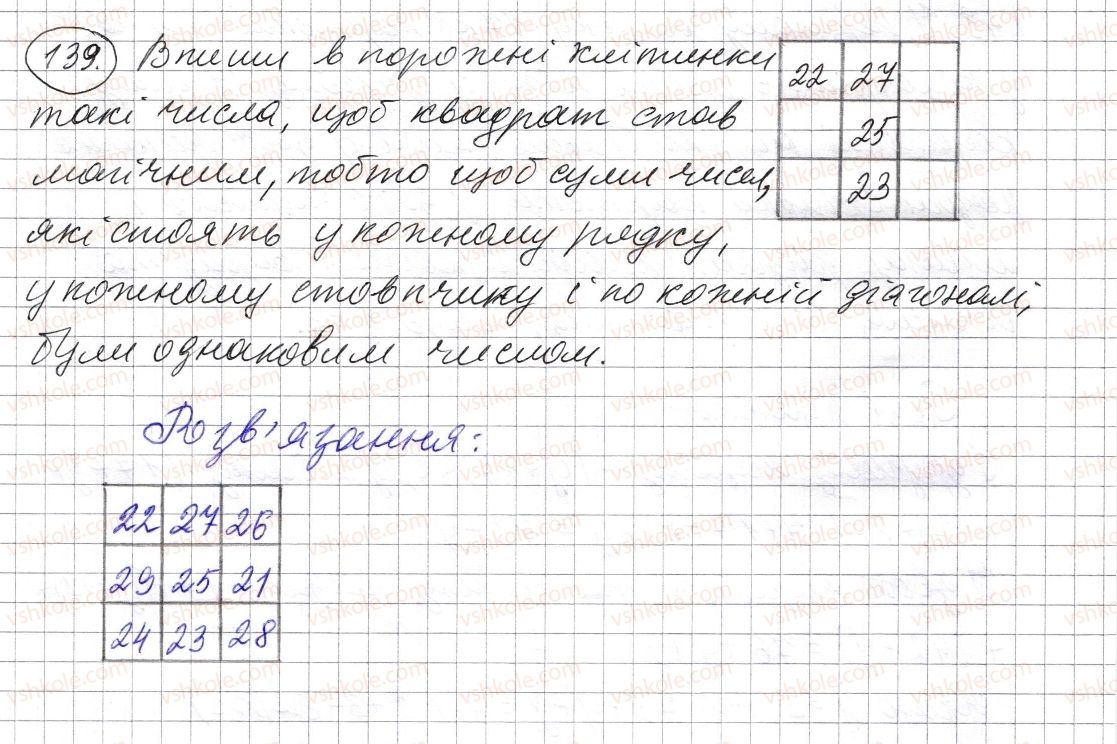 139. Впиши в порожені клітинки
такі числа, щоб квадрат став
магічним, тобто щоб суми чисел,
які стоять у кожному рядку,
у кожному стовпчику і по кожній діагоналі,
були однаковим числом.
22 27
25
23
Розв'язання:
22 27 26
29 25 21
24 23 28
vshkole.com